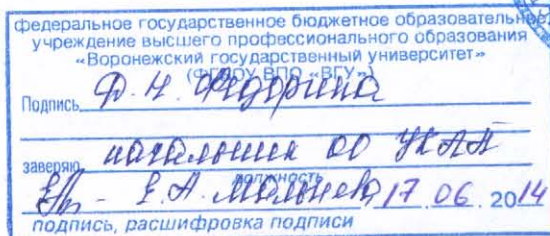 федеральное государственное бюджетное образовательное
учреждение высшего профессионального образования
«Воронежский государственный университет»
(ФГБОУ ВПО «ВГУ»)
Подпись
заверяю начальник оо
должность
Е.А. 17.06.2014
подпись, расшифровка подписи